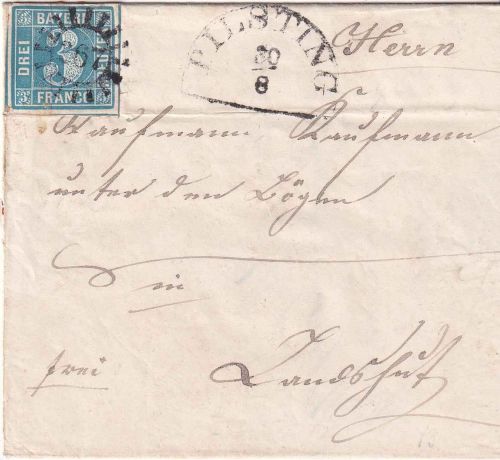 BAYERN
DREI
3
FRANCO
PILSTING
20
8
Herrn
Kaufmann Kaufmann
unter den Bögen
in
frei Landshut